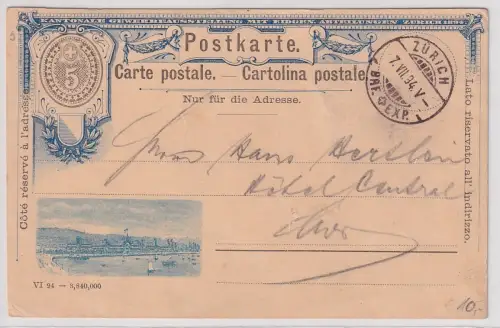 KANTONALE GEWERBEAUSSTELLUNG MIT EIDGEN. ABTEILUNGEN ZÜRICH 1894
5
Postkarte.
Carte postale. — Cartolina postale.
Nur für die Adresse.
ZÜRICH
7.VII.94.V-
BRF. EXP.
Côté réservé à l'adresse.
Lato riservato all' indirizzo.
Herrn Hans
Hôtel Central
VI 94 — 3,840,000
10,-